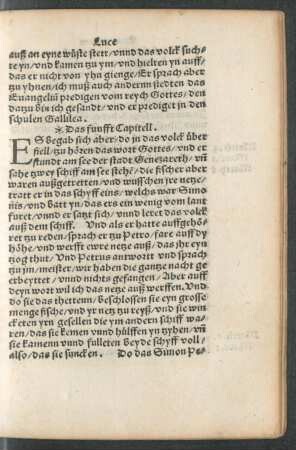 Luce
auß an eyne wüste stett/vnnd das volck such-
te yn/vnd kamen zu ym/vnd hielten yn auff/
das er nicht von yhn gienge/Er sprach aber
zu yhnen/ich muß auch anderun stedten das
Euangeliü predigen vom reych Gottes/den
datzu bin ich gesandt/vnd er prediget in den
schulen Gallilea.
Das funfft Capitell.
ES begab sich aber/do in das volck über
fiell/zu hören das wort Gottes/vnd er
stunde am see der stadt Genezareth/vñ
sahe zwey schiff am see stehē/die fischer aber
waren außgetretten/vnd wusschen jre netze/
tratt er in das schyff eins/welchs war Simo
nis/vnd batt yn/das ers ein wenig vom lant
furet/vnnd er satzt sich/vnnd leret das volck
auß dem schiff. Vnd als er hatte auffgehö-
ret zu reden/sprach er zu Petro/fare auff dy
höhe/vnd werfft ewre netze auß/das jhr eyn
tzog thut/Vnd Petrus antwortt vnd sprach
zu jm/meister/wir haben die gantze nacht ge
erbeyttet/vnnd nichts gefangen/Aber auff
deyn wort wil ich das netze auß werffen. Vnd
do sie das thettenn/beschlossen sie eyn grosse
menge fische/vnd yr netz zu reyß/vnd sie win
cketen yrn gesellen die ym andern schiff wa-
ren/das sie kemen vnnd hülffen yn tzyhen/vñ
sie kamenn vnnd fulleten beyde schyff voll/
also/das sie suncken. Do das Simon Pe-